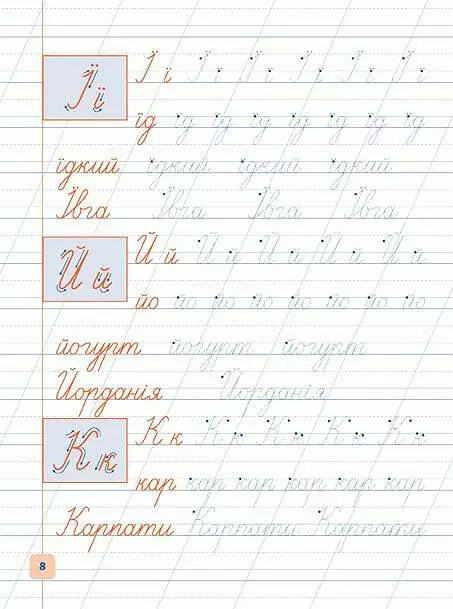 Ї ї Ї ї Ї ї Ї ї Ї ї Ї ї Ї ї
їд їд їд їд їд їд їд їд
їдкий їдкий їдкий їдкий
Ївга Ївга Ївга Ївга
Й й Й й Й й Й й Й й Й й Й й
йо йо йо йо йо йо йо йо
йогурт йогурт йогурт
Йорданія Йорданія
К к К к К к К к К к К к
кар кар кар кар кар кар
Карпати Карпати Карпати
8